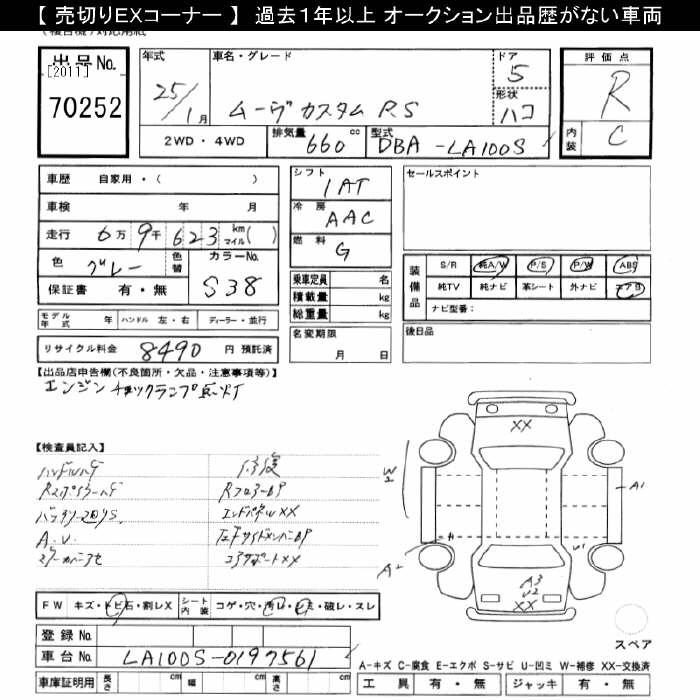 【 売切りEXコーナー 】 過去1年以上 オークション出品歴がない車両
出品No.
[2011]
70252
年式
25/1月
車名・グレード
ムーヴカスタム RS
ドア
5
形状
ハコ
2WD・4WD
排気量
660 cc
型式
DBA-LA100S
評価点
R
内装
C
車歴 自家用・( )
車検 年 月
走行 6万 9千 623 km マイル( )
色 グレー
色替
カラーNo.
S38
保証書 有・無
モデル年式 年 ハンドル 左・右 ディーラー・並行
リサイクル料金 8490 円 預託済
シフト
1AT
冷房
AAC
燃料
G
乗車定員 名
積載量 kg
総重量 kg
名変期限
月 日
セールスポイント
装備品
S/R 純A/W P/S P/W ABS
純TV 純ナビ 革シート 外ナビ エアB
ナビ型番:
後日品
【出品店申告欄(不良箇所・欠品・注意事項等)】
エンジンチェックランプ点灯
【検査員記入】
A.U.
エンドパネルXX
コアサポートXX
XX
W2
A1
A2
U1
A3
U2
XX
FW キズ・トビ石・割レX
シート内装 コゲ・穴・汚レ・シミ・破レ・スレ
登録No.
車台No. LA100S-0197561
車庫証明用 長さ cm 幅 cm 高さ cm
スペア
A-キズ C-腐食 E-エクボ S-サビ U-凹ミ W-補修 XX-交換済
工具 有・無 ジャッキ 有・無